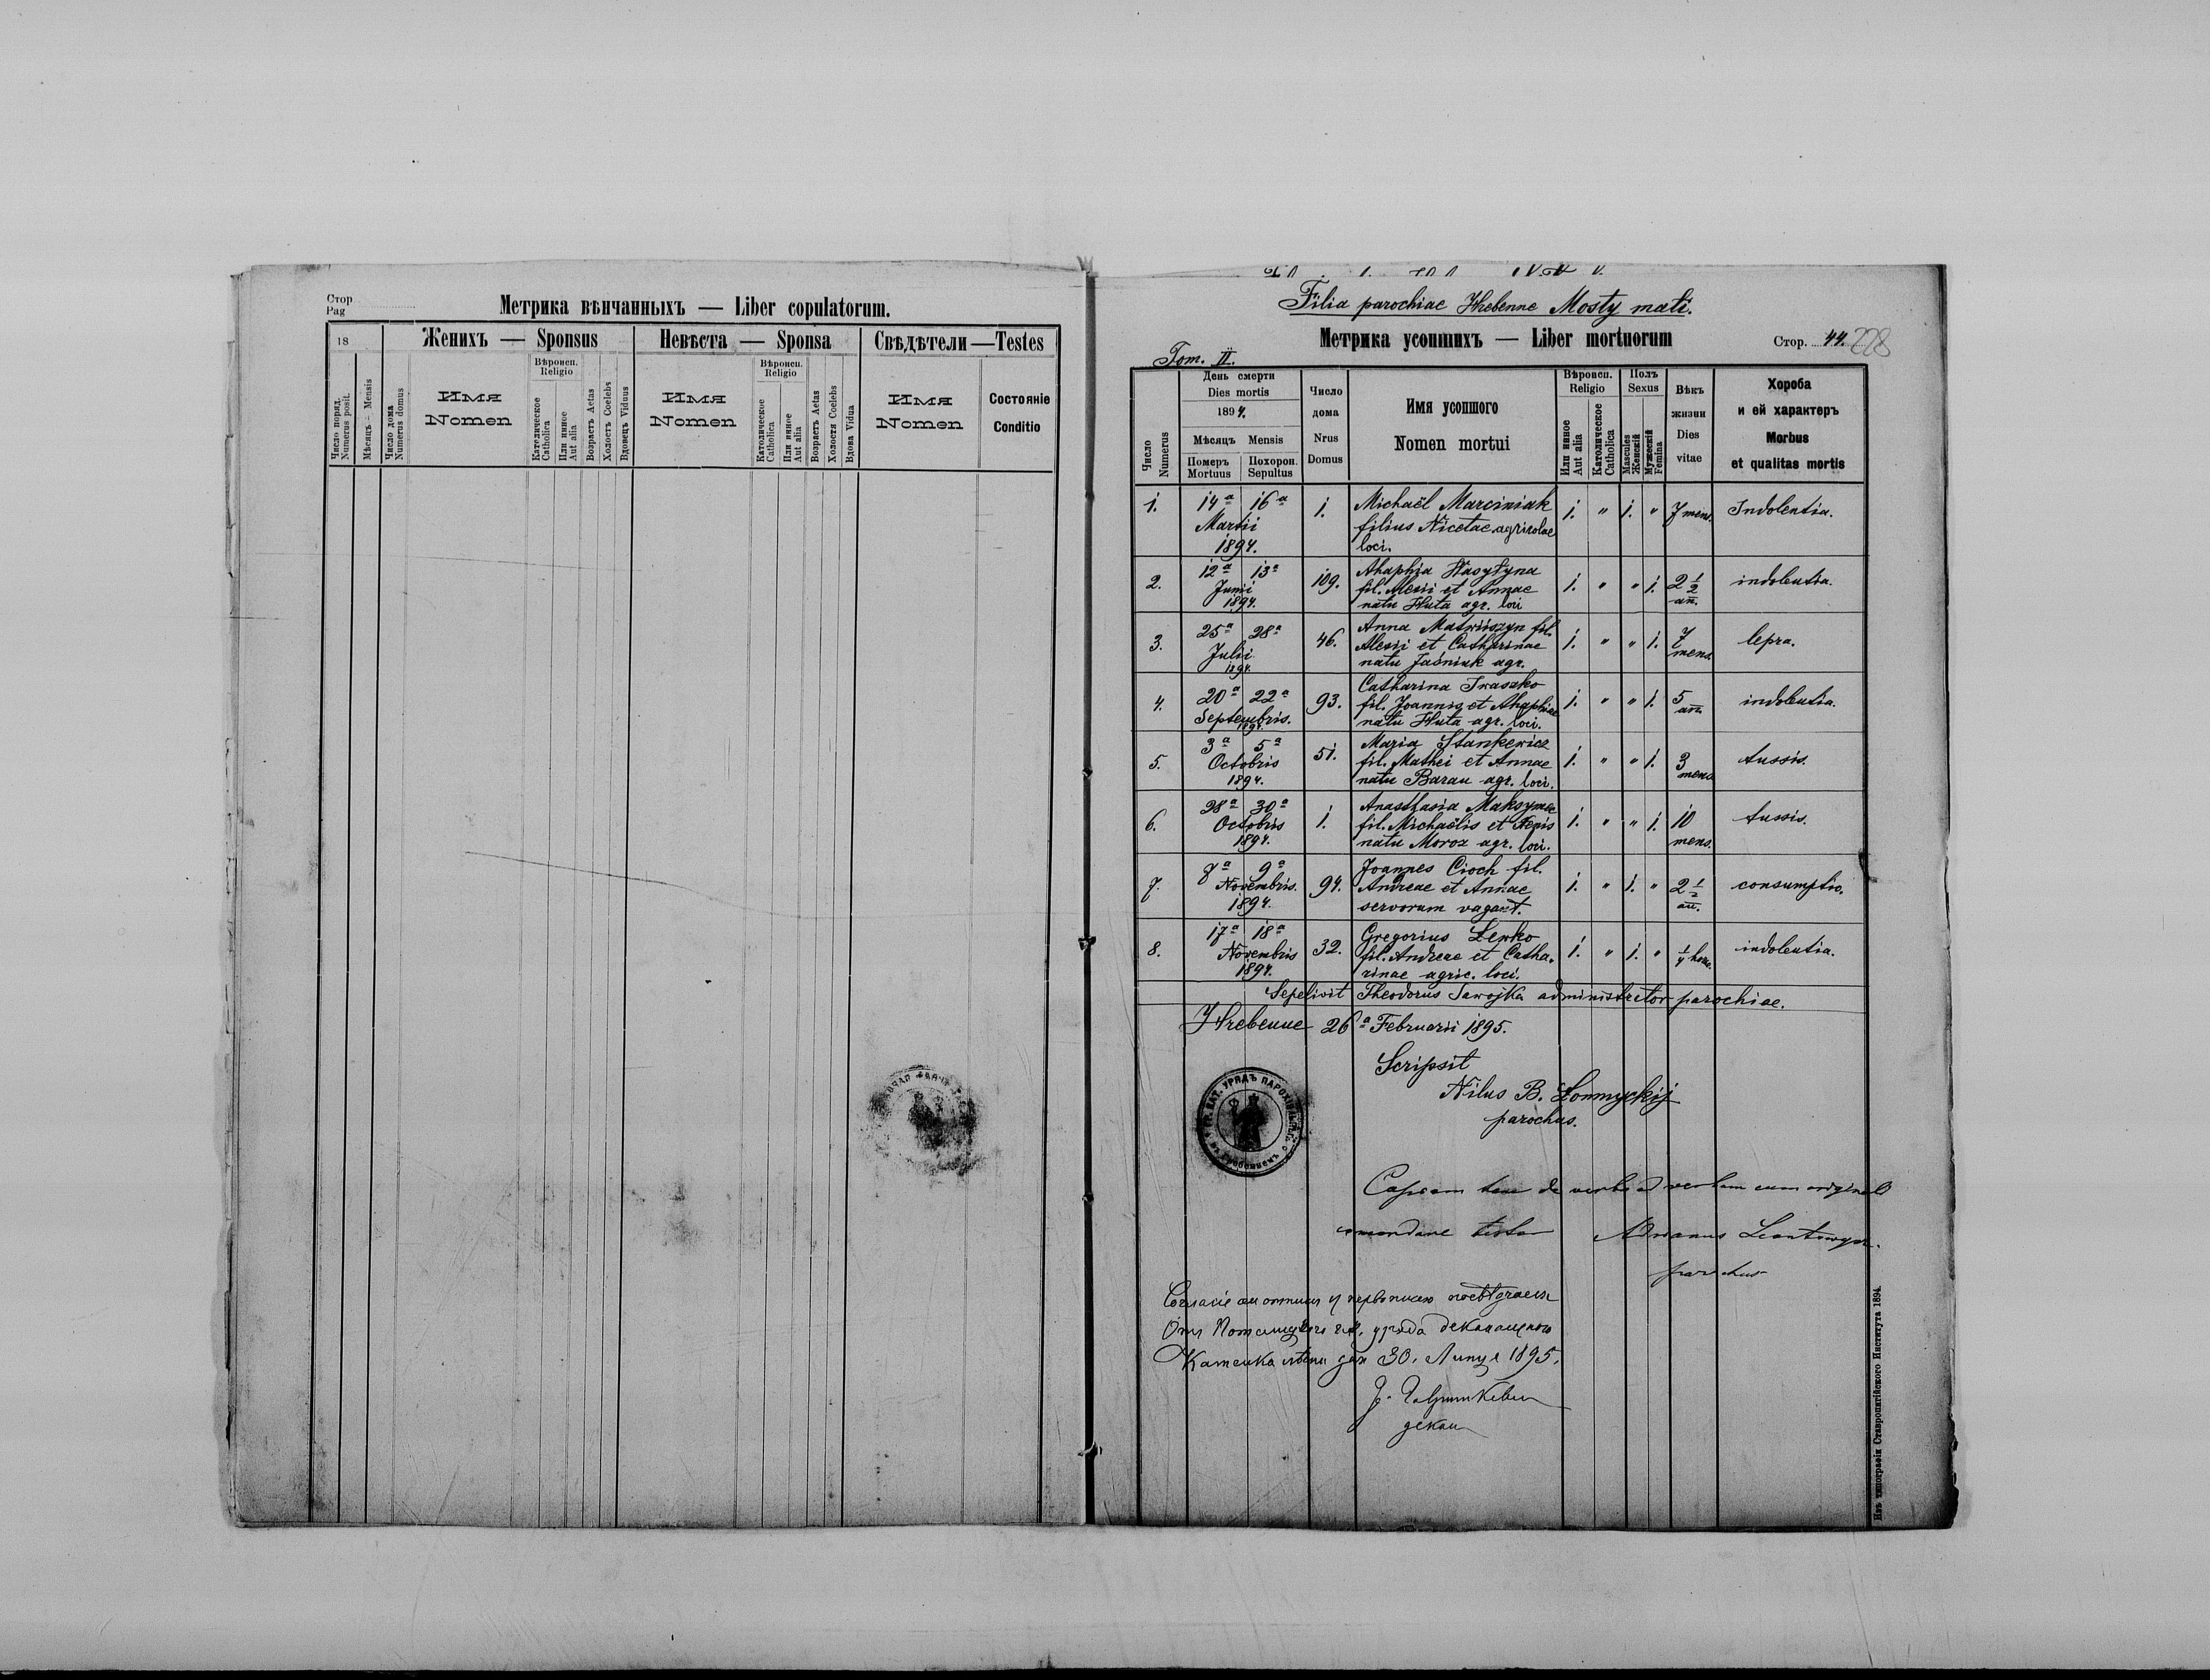 Стор
Pag
Метрика вѣнчанныхъ — Liber copulatorum.
18
Женихъ — Sponsus
Невѣста — Sponsa
Свѣдѣтели — Testes
Число поряд.
Numerus posit.
Мѣсяцъ – Mensis
Число дома
Numerus domus
Имя
Nomen
Вѣроисп.
Religio
Католическое
Catholica
Или инное
Aut alia
Возрастъ Aetas
Холостъ Coelebs
Вдовецъ Viduus
Имя
Nomen
Вѣроисп.
Religio
Католическое
Catholica
Или инное
Aut alia
Возрастъ Aetas
Холостя Coelebs
Вдова Vidua
Имя
Nomen
Состоянiе
Conditio
Filia parochiae Hrebenne Mosty małi.
Метрика усопшихъ — Liber mortuorum
Стор. 44. 228
Tom. II.
День смерти
Dies mortis
1894.
Мѣсяцъ Mensis
Померъ Похорон.
Mortuus Sepultus
Число
Numerus
Число
дома
Nrus
Domus
Имя усопшого
Nomen mortui
Вѣроисп.
Religio
Или инное
Aut alia
Католическое
Catholica
Полъ
Sexus
Mascules
Женскiй
Мужескiй
Femina
Вѣкъ
жизни
Dies
vitae
Хороба
и ей характеръ
Morbus
et qualitas mortis
1. 14a 16a 1. Michaël Marciniak 1. " 1. " 7 mens. Indolentia.
Martii filius Nicetae agricolae
1894. loci.
2. 12a 13a 109. Ahaphia Wasyłyna 1. " " 1. 2 1/2 indolentia.
Junii fil. Alexii et Annae
1894. natu Huta agr. loci an.
3. 25a 28a 46. Anna Matwiiszyn fil. 1. " " 1. 7 lepra.
Julii Alexii et Catharinae mens.
1894. natu Jaśniuk agr.
4. 20a 22a 93. Catharina Iwaszko 1. " " 1. 5 indolentia.
Septembris. fil. Joannis et Ahaphiae an.
1894. natu Huta agr. loci.
5. 3a 5a 51. Maria Stankewicz 1. " " 1. 3 tussis.
Octobris fil. Mathei et Annae mens.
1894. natu Baran agr. loci.
6. 28a 30a 1. Anasthasia Maksymec 1. " " 1. 10 tussis.
Octobris fil. Michaëlis et Xenis mens.
1894. natu Moroz agr. loci.
7. 8a 9a 94. Joannes Cioch fil. 1. " 1. " 2 1/2 consumptio.
Novembris. Andreae et Annae an.
1894. servorum vagant.
8. 17a 18a 32. Gregorius Lewko 1. " 1. " 1/4 horae. indolentia.
Novembris fil. Andreae et Catha-
1894. rinae agric. loci.
Sepelivit Theodorus Sawojka administrator parochiae.
Hrebenne 26a Februarii 1895.
Scripsit
Nilus B. Łonmyckij
parochus.
Copiam hanc de verbo ad verbum cum originali
concordare testor Adrianus
parochus
30. Липця 1895.
декан
Изъ типографiи Ставропигiйского Института 1894.